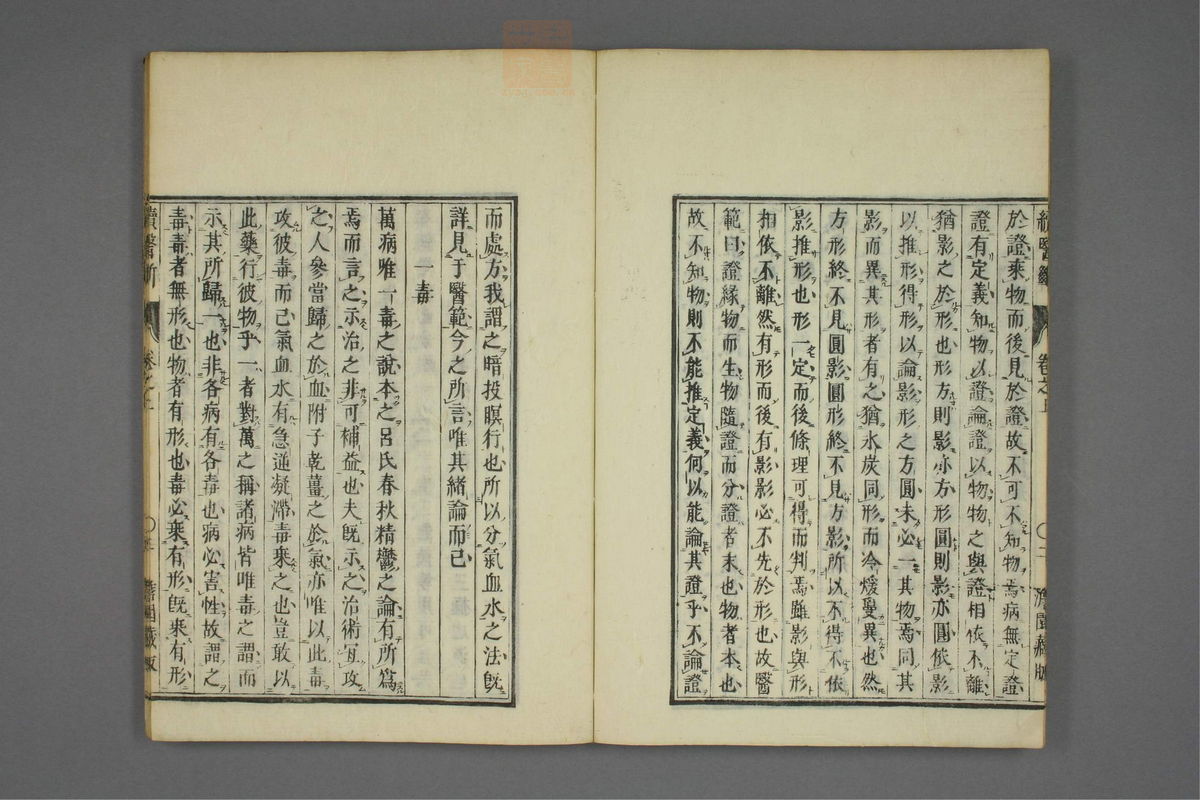 續醫斷 卷之上 〇二
於證乘物而後見於證故不可不知物焉病無定證
證有定義知物以證論證以物物之與證相依不離
猶影之於形也形方則影亦方形圓則影亦圓依影
以推形得形以論影形之方圓未必一其物焉同其
影而異其形者有之猶氷炭同形而冷煖憂異也然
方形終不見圓影圓形終不見方影所以不得不依
影推形也形一定而後條理可得而判焉雖影與形
相依不離然有形而後有影影必不先於形也故醫
範曰證緣物而生物隨證而分證者末也物者本也
故不知物則不能推定義何以能論其證乎不論證
而處方我謂之暗投瞑行也所以分氣血水之法旣
詳見于醫範今之所言唯其緒論而已
一毒
萬病唯一毒之說本之呂氏春秋精鬱之論有所爲
焉而言之示治之非可補益也夫旣示之治術宐攻
之人參當歸之於血附子乾薑之於氣亦唯以此毒
攻彼毒而已氣血水有急逆凝滯毒乘之也豈敢以
此藥行彼物乎一者對萬之稱諸病皆唯毒之謂而
示其所歸一也非各病有各毒也病必害性故謂之
毒毒者無形也物者有形也毒必乘有形旣乘有形
續醫斷 卷之上